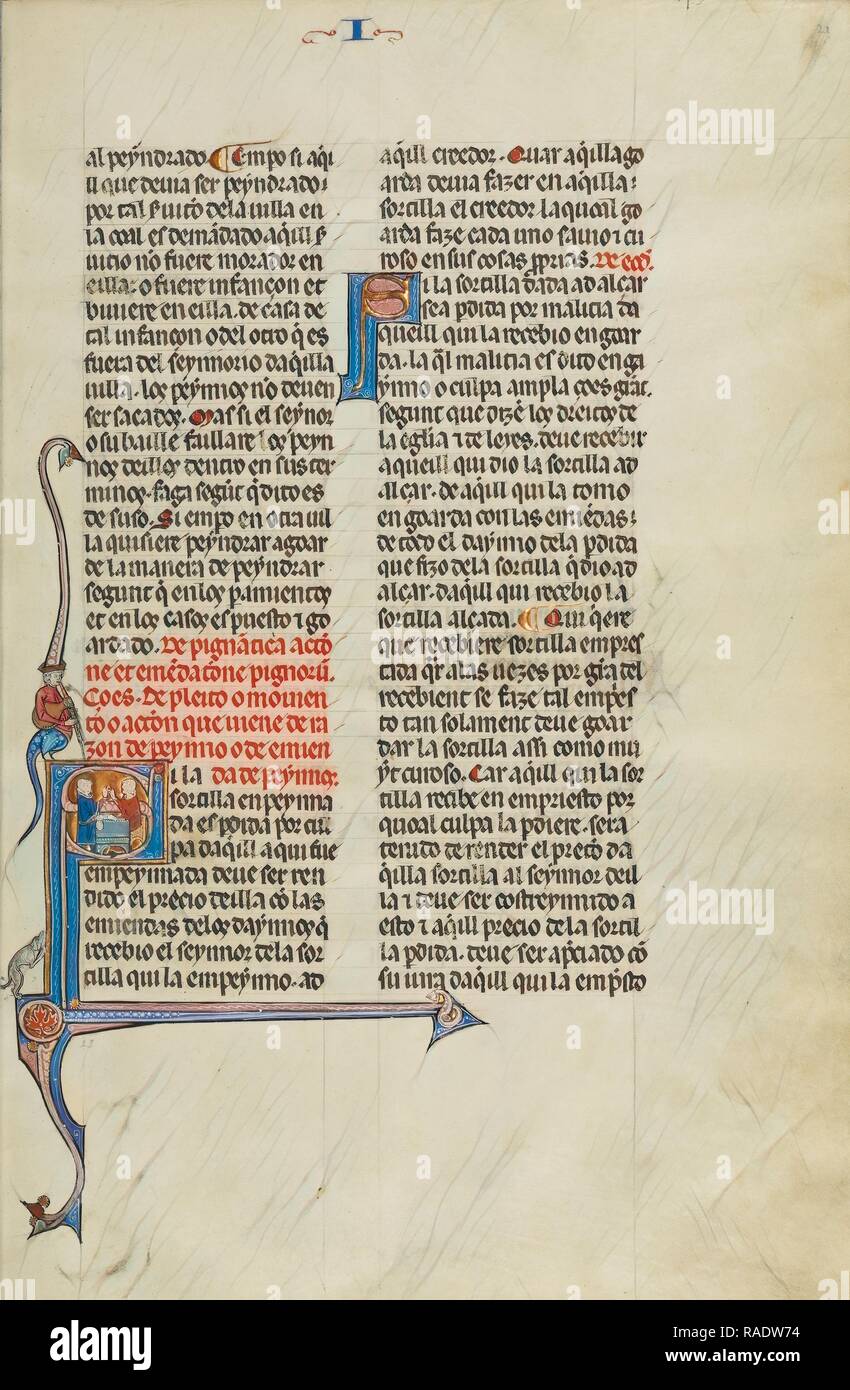 I
al peyndrado. Empo si aq̃
ll que deuia ser peyndrado.
por tal ẜuicio dela uilla en
la coal es demãdado aq̃ll ẜ
uicio no fuere morador en
eilla: o fuere infançon et
biuiere en eilla. de casa de
tal infançon o del otro q̃ es
fuera del seynnorio daq̃illa
uilla. los peynnos no deuen
ser sacados. Mas si el seynor
o su baille fuillare los peyn
nos deillos dentro en sus ter
minos. faga segũt q̃ dito es
de suso. Si empo en otra uil
la quisiere peyndrar agoar
de la manera de peyndrar
segunt q̃ en los
et en los casos es puesto ⁊ go
ardado. De pignãtica acto
ne et emẽdatone pignorũ.
De pleito o mouien
to o acton que uiene de ra
zon de peynno o de emien
Si la da de peynnos.
sortilla en peynna
da es pdida por cul
pa daq̃ll a qui fue
empeynnada deue ser ren
dido el precio deilla cõ las
emiendas delos daynnos q̃
recebio el seynnor dela sor
tilla qui la empeynno. ad
aq̃ill creedor. Quar aq̃illa go
arda deuia fazer en aq̃illa
sortilla el creedor la quoal go
arda faze cada uno sauio ⁊ cu
roso en sus cosas pprias.
Si la sortilla dada ad alçar
sea pdida por malicia da
queill qui la recebio en goar
da. la q̃l malicia es dito enga
ynno o culpa ampla
segunt que dizẽ los dreitos de
la eglia ⁊ de leyes. deue recebir
aqueill qui dio la sortilla ad
alçar. de aq̃ill qui la tomo
en goarda con las emiẽdas
de todo el daynno dela pdida
que fizo dela sortilla q̃ dio ad
alçar. daq̃ill qui recebio la
sortilla alçada. Qui q̃ere
que recebiere sortilla empres
tida q̃r a las uezes por grã del
recebient se faze tal empẽs
to tan solament deue goar
dar la sortilla assi como mu
yt curoso. Car aq̃ill qui la sor
tilla recibe en empriesto por
quoal culpa la pdiere. sera
tenido de render el precio da
q̃illa sortilla al seynnor deil
la ⁊ deue ser costreynnido a
esto ⁊ aq̃ill precio de la sortil
la pdida. deue ser apciado cõ
su iura daq̃ill qui la empsto
alamy
Image ID: RADW74
www.alamy.com